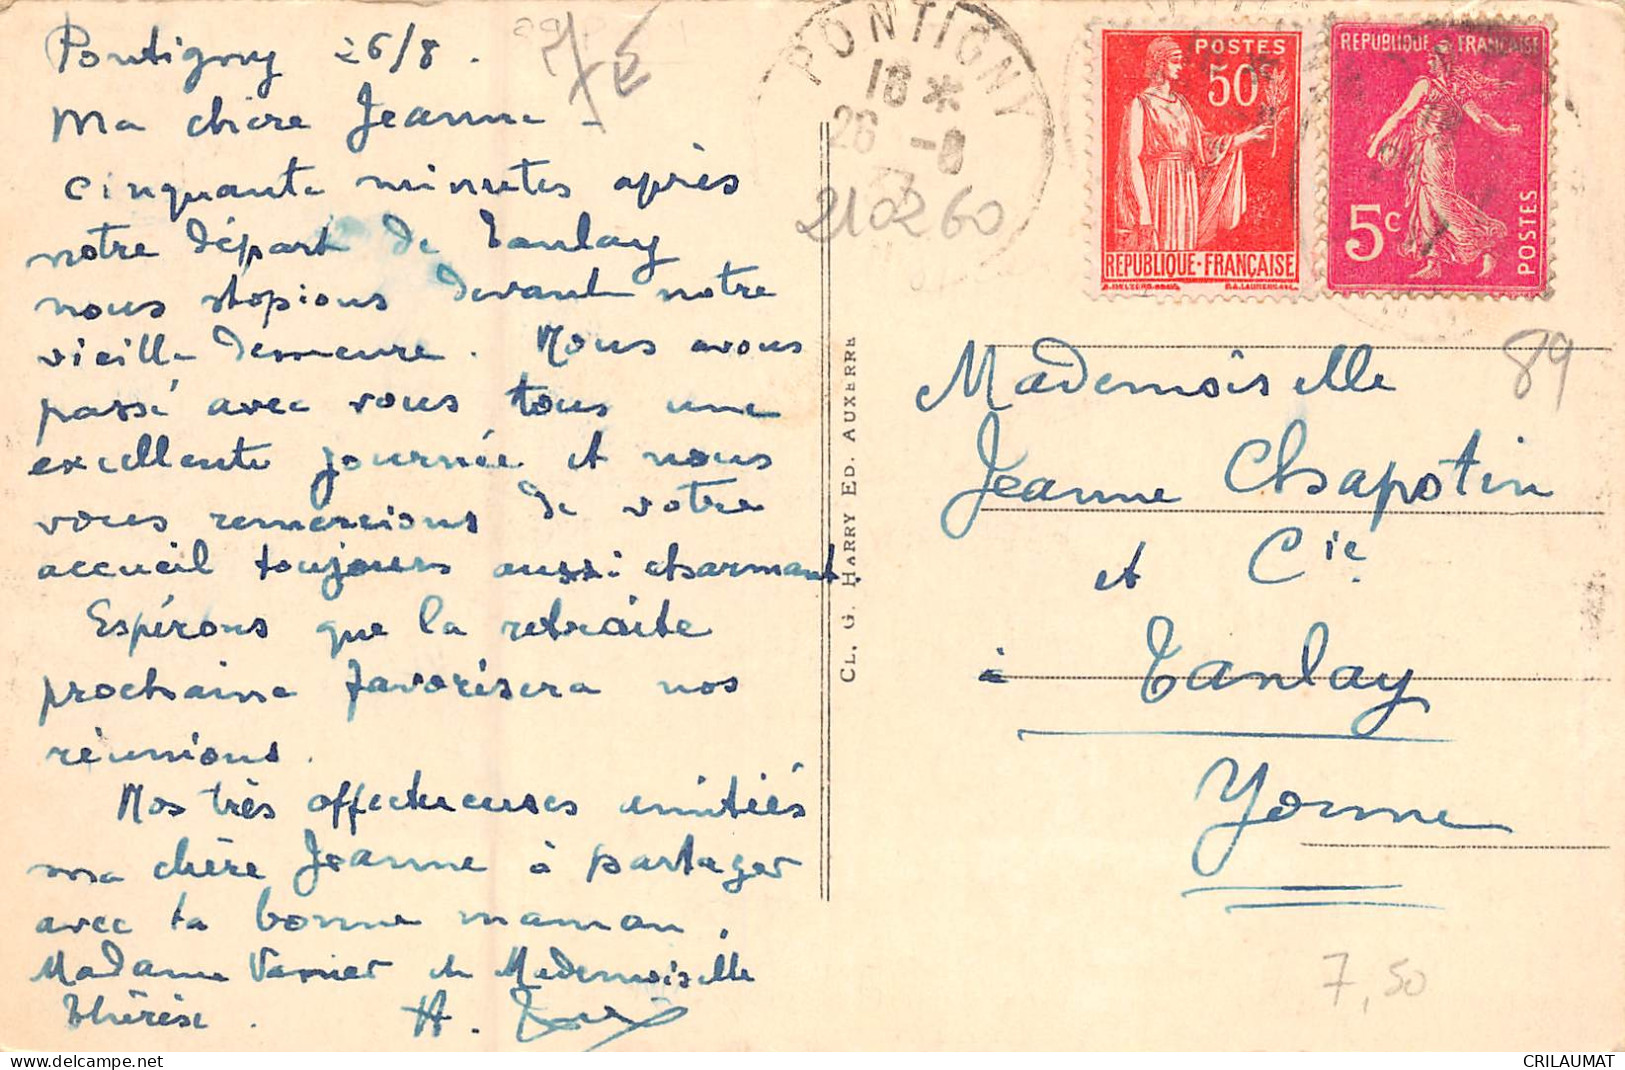 Pontigny 26/8.
Ma chère Jeanne -
cinquante minutes après
notre départ de Tanlay
nous stopions devant notre
vieille demeure. Nous avons
passé avec vous tous une
excellente journée et nous
vous remercions de votre
accueil toujours aussi charmant.
Espérons que la retraite
prochaine favorisera nos
réunions.
Nos très affectueuses amitiés
ma chère Jeanne à partager
avec ta bonne maman,
Madame Varnier et Mademoiselle
Thérèse.
H.
CL. G. HARRY ED. AUXERRE
PONTIGNY
18 *
26 -8
210260
POSTES
50c
REPUBLIQUE-FRANÇAISE
REPUBLIQUE FRANÇAISE
5c
POSTES
89
Mademoiselle
Jeanne Chapotin
et Cie
à Tanlay
Yonne
7,50
delcampe.net
CRILAUMAT